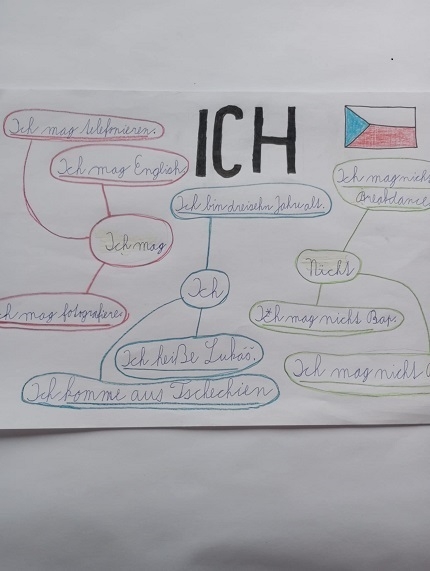 ICH
Ich mag telefonieren.
Ich mag English.
Ich mag
Ich mag fotografieren
Ich bin dreisehn Jahre alt.
Ich
Ich heiße Lukáš.
Ich komme aus Tschechien
Ich mag nicht
Breakdance
Nicht
Ich mag nicht Rap.
Ich mag nicht